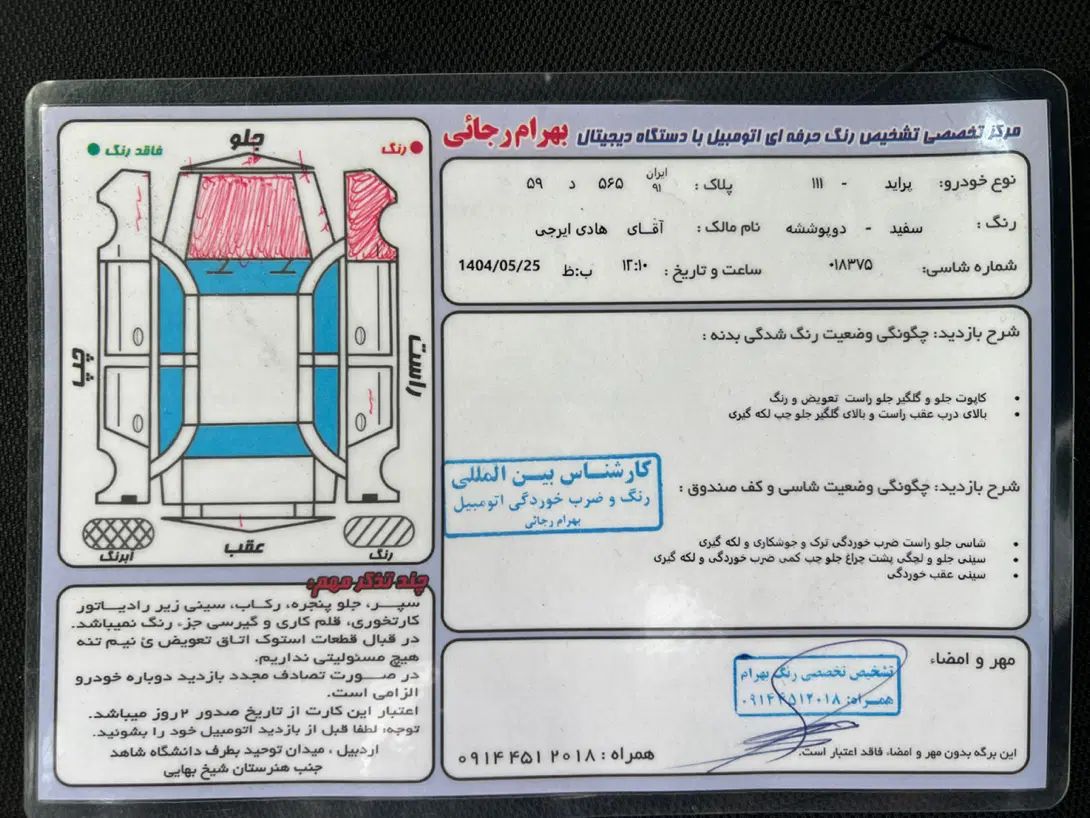 مرکز تخصصی تشخیص رنگ حرفه ای اتومبیل با دستگاه دیجیتال بهرام رجائی
نوع خودرو: پراید - ۱۱۱ پلاک: ایران ۹۱ ۵۶۵ د ۵۹
رنگ: سفید - دوپوششه نام مالک: آقای هادی ایرجی
شماره شاسی: ۰۱۸۳۷۵ ساعت و تاریخ: ۱۲:۱۰ ب:ظ 1404/05/25
شرح بازدید: چگونگی وضعیت رنگ شدگی بدنه:
• کاپوت جلو و گلگیر جلو راست تعویض و رنگ
• بالای درب عقب راست و بالای گلگیر جلو چپ لکه گیری
کارشناس بین المللی
رنگ و ضرب خوردگی اتومبیل
بهرام رجائی
شرح بازدید: چگونگی وضعیت شاسی و کف صندوق:
• شاسی جلو راست ضرب خوردگی ترک و جوشکاری و لکه گیری
• سینی جلو و لچگی پشت چراغ جلو چپ کمی ضرب خوردگی و لکه گیری
• سینی عقب خوردگی
مهر و امضاء
تشخیص تخصصی رنگ بهرام
همراه: ۰۹۱۴۴۵۱۲۰۱۸
این برگه بدون مهر و امضاء فاقد اعتبار است.
همراه: ۰۹۱۴ ۴۵۱ ۲۰۱۸
رنگ
جلو
فاقد رنگ
راست
چپ
رنگ
عقب
آبرنگ
چند تذکر مهم:
سپر، جلو پنجره، رکاب، سینی زیر رادیاتور
کارتخوری، قلم کاری و گیرسی جزء رنگ نمیباشد.
در قبال قطعات استوک اتاق تعویض ئ نیم تنه
هیچ مسئولیتی نداریم.
در صورت تصادف مجدد بازدید دوباره خودرو
الزامی است.
اعتبار این کارت از تاریخ صدور ۲ روز میباشد.
توجه: لطفا قبل از بازدید اتومبیل خود را بشوئید.
اردبیل، میدان توحید بطرف دانشگاه شاهد
جنب هنرستان شیخ بهایی